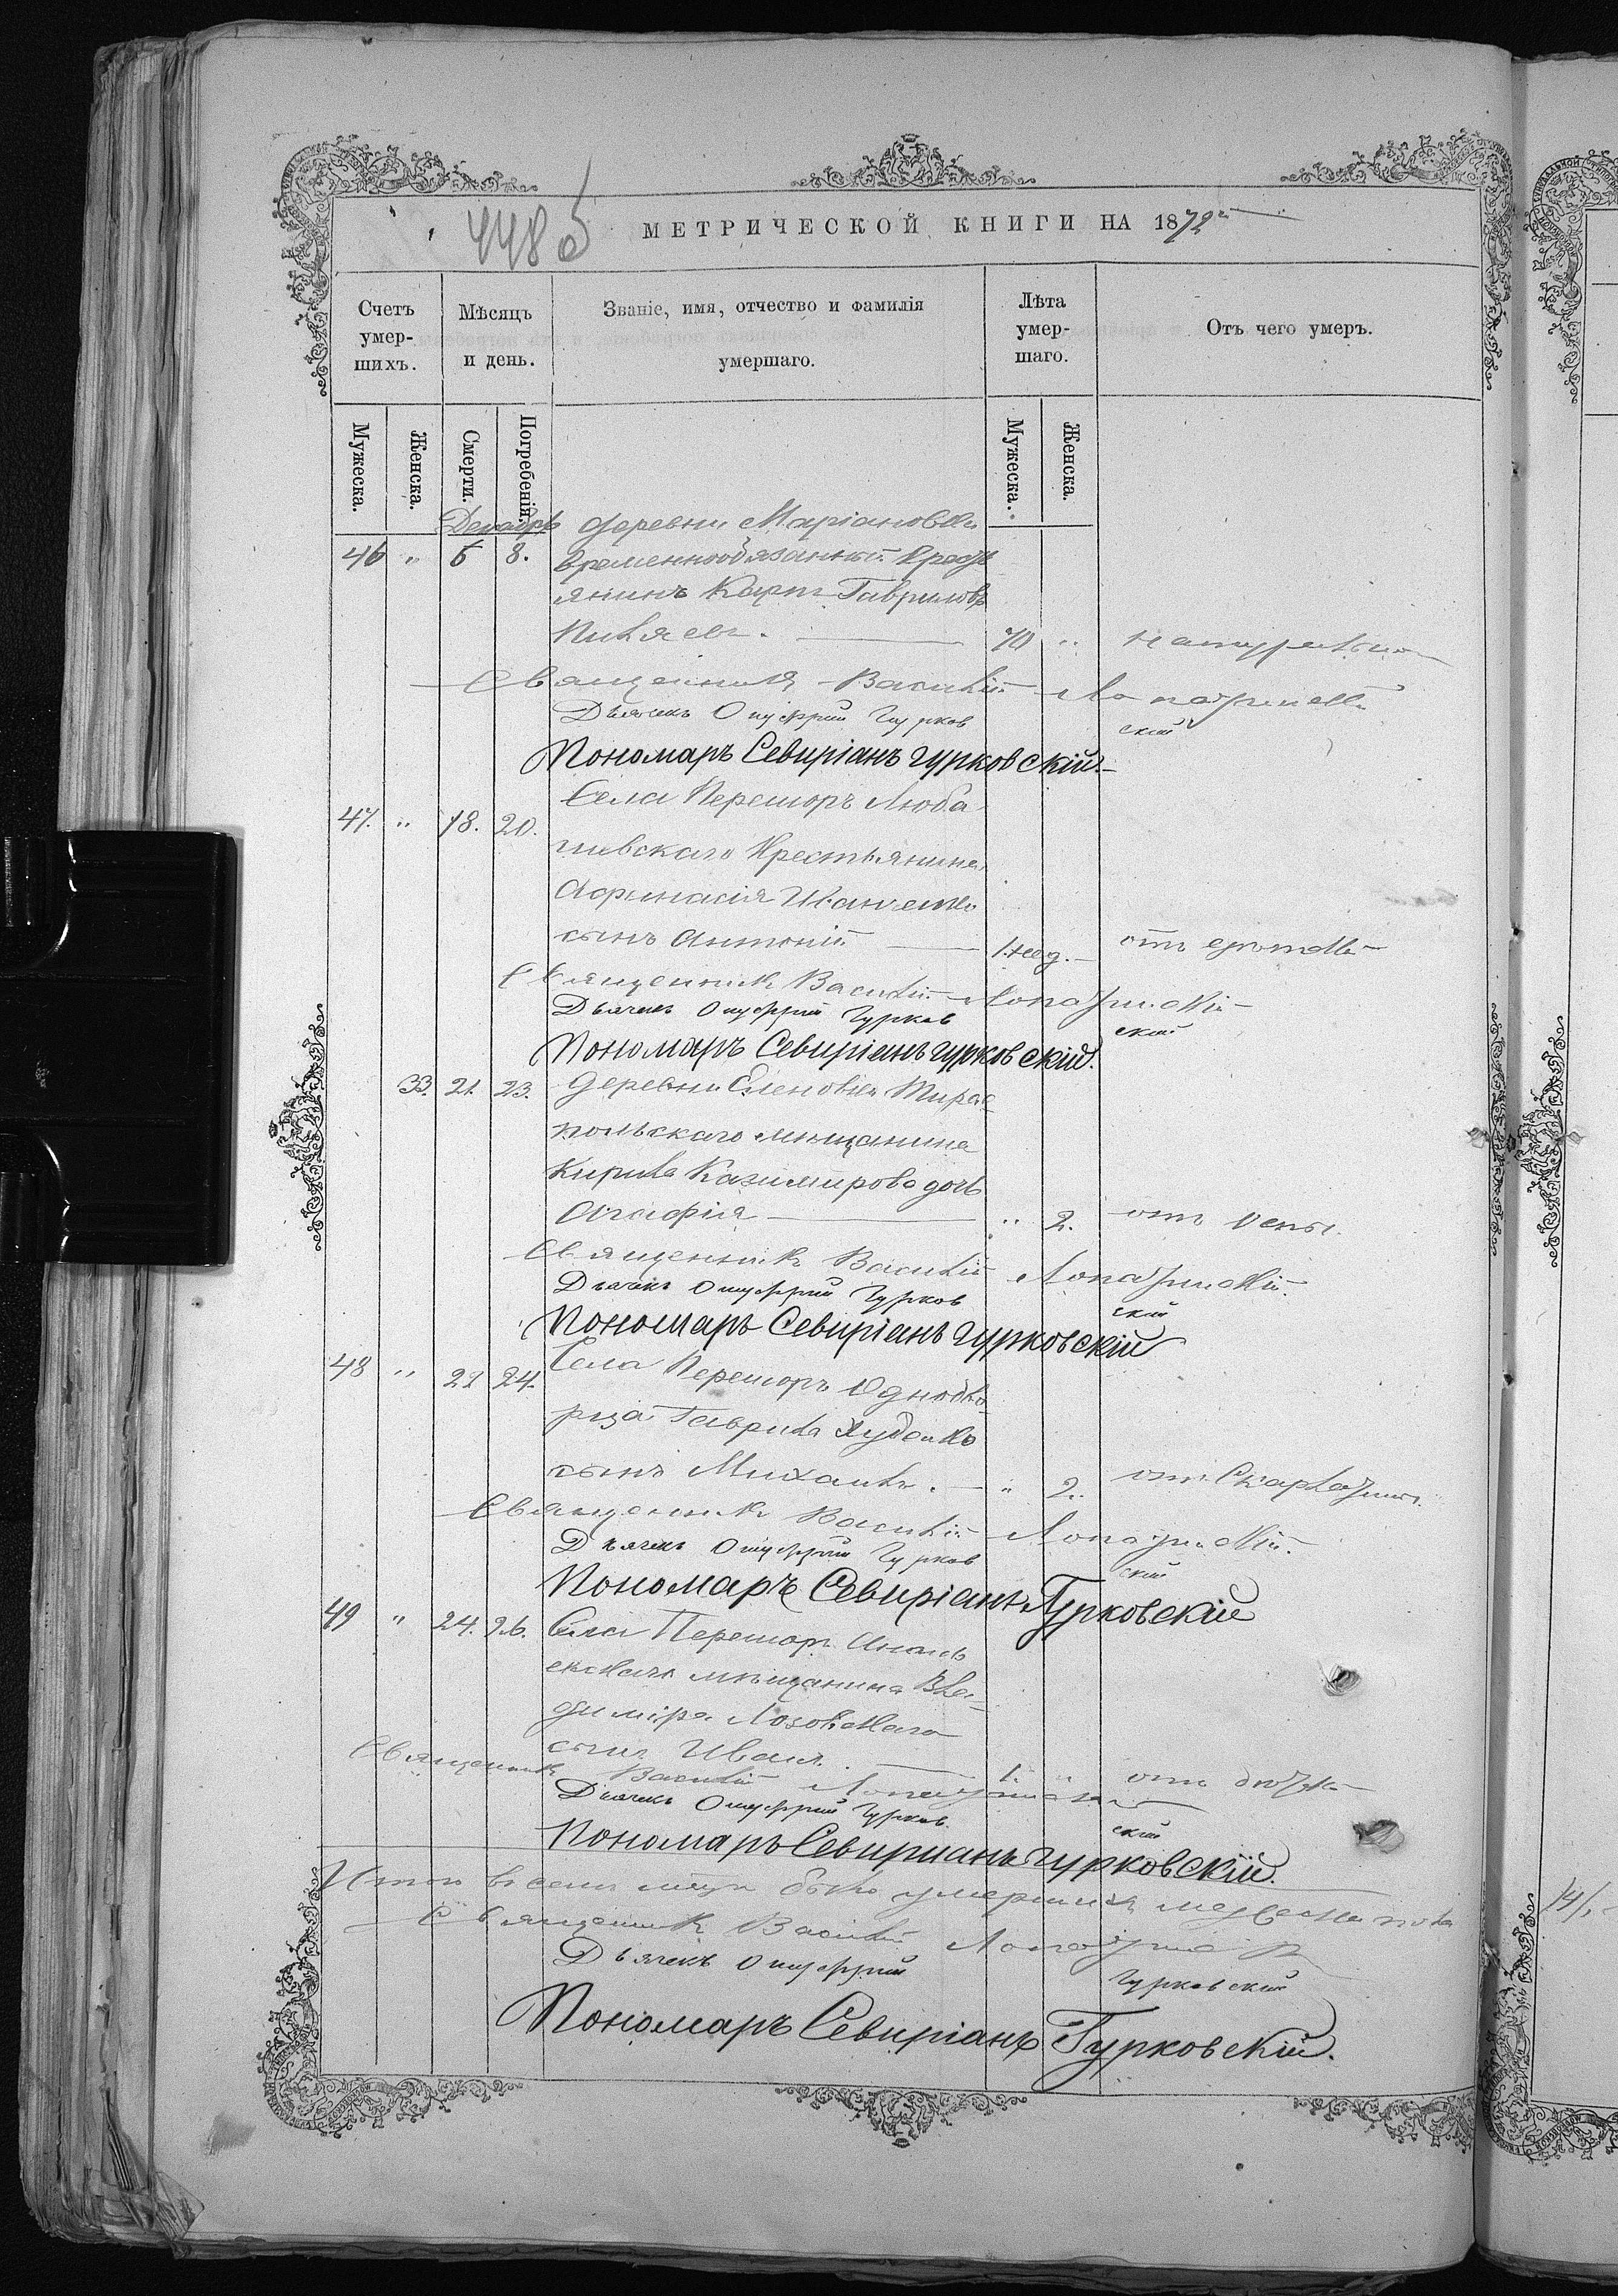 448 об
МЕТРИЧЕСКОЙ КНИГИ НА 1872й
Счетъ умершихъ.
Мѣсяцъ и день.
Званіе, имя, отчество и фамилія умершаго.
Лѣта умершаго.
Отъ чего умеръ.
Мужеска.
Женска.
Смерти.
Погребенія.
Мужеска.
Женска.
Декабрь деревни Маріановки
46 " 6 8. временнообязанный Крестья
янинъ Карпъ Гавриловъ
70 " натурально
Священникъ Василій
Дьячекъ Онуфрій Гурков
ский
Пономаръ Севиріанъ Гурковскій.
47. " 18. 20. Села Перешоръ Люба
шевскаго Крестьянина
Афанасія
сынъ Антоній 1 нед.
Священникъ Василій
Дьячекъ Онуфрій Гурков
ский
Пономаръ Севиріанъ Гурковскій.
33. 21. 23. деревни Еленовки Тирас-
польскаго мѣщанина
Кирила Казимирова дочь
Агафія " 2. отъ оспы.
Священникъ Василій
Дьячекъ Онуфрій Гурков
ский
Пономаръ Севиріанъ Гурковскій
48 " 22 24. Села Перешоръ Однодво-
рца Гаврила
сынъ Михаилъ. " 2. отъ Скарлатины.
Священникъ Василій
Дьячекъ Онуфрій Гурков
ский
Пономаръ Севиріанъ Гурковскій
49 " 24. 26. Села Перешоръ Анань
евскаго мѣщанина Вла-
диміра Лозовскаго
сынъ Иванъ. 1. "
Священникъ Василій
Дьячекъ Онуфрій Гурков
ский
Пономаръ Севирианъ Гурковскій.
Итого въ семъ мцѣ было умершихъ мужеска пола
Священникъ Василій
Дьячекъ Онуфрій Гурковский
Пономаръ Севиріанъ Гурковскій.